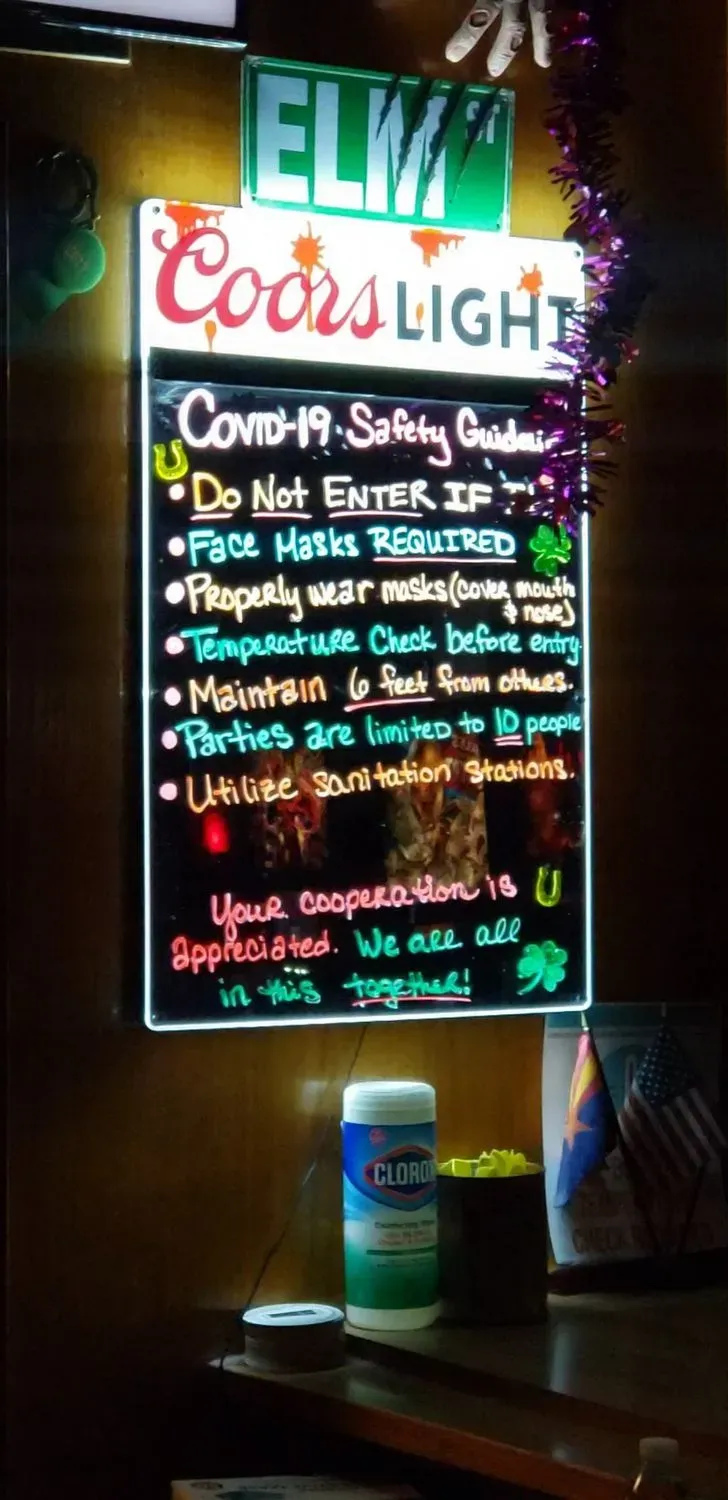 ELM ST
Coors LIGHT
COVID-19 Safety
• Do Not ENTER IF
• Face Masks REQUIRED
• Properly wear masks (cover mouth
& nose)
• Temperature Check before entry.
• Maintain 6 feet from others.
• Parties are limited to 10 people
• Utilize sanitation stations.
Your cooperation is
appreciated. We are all
in this together!
CLOROX